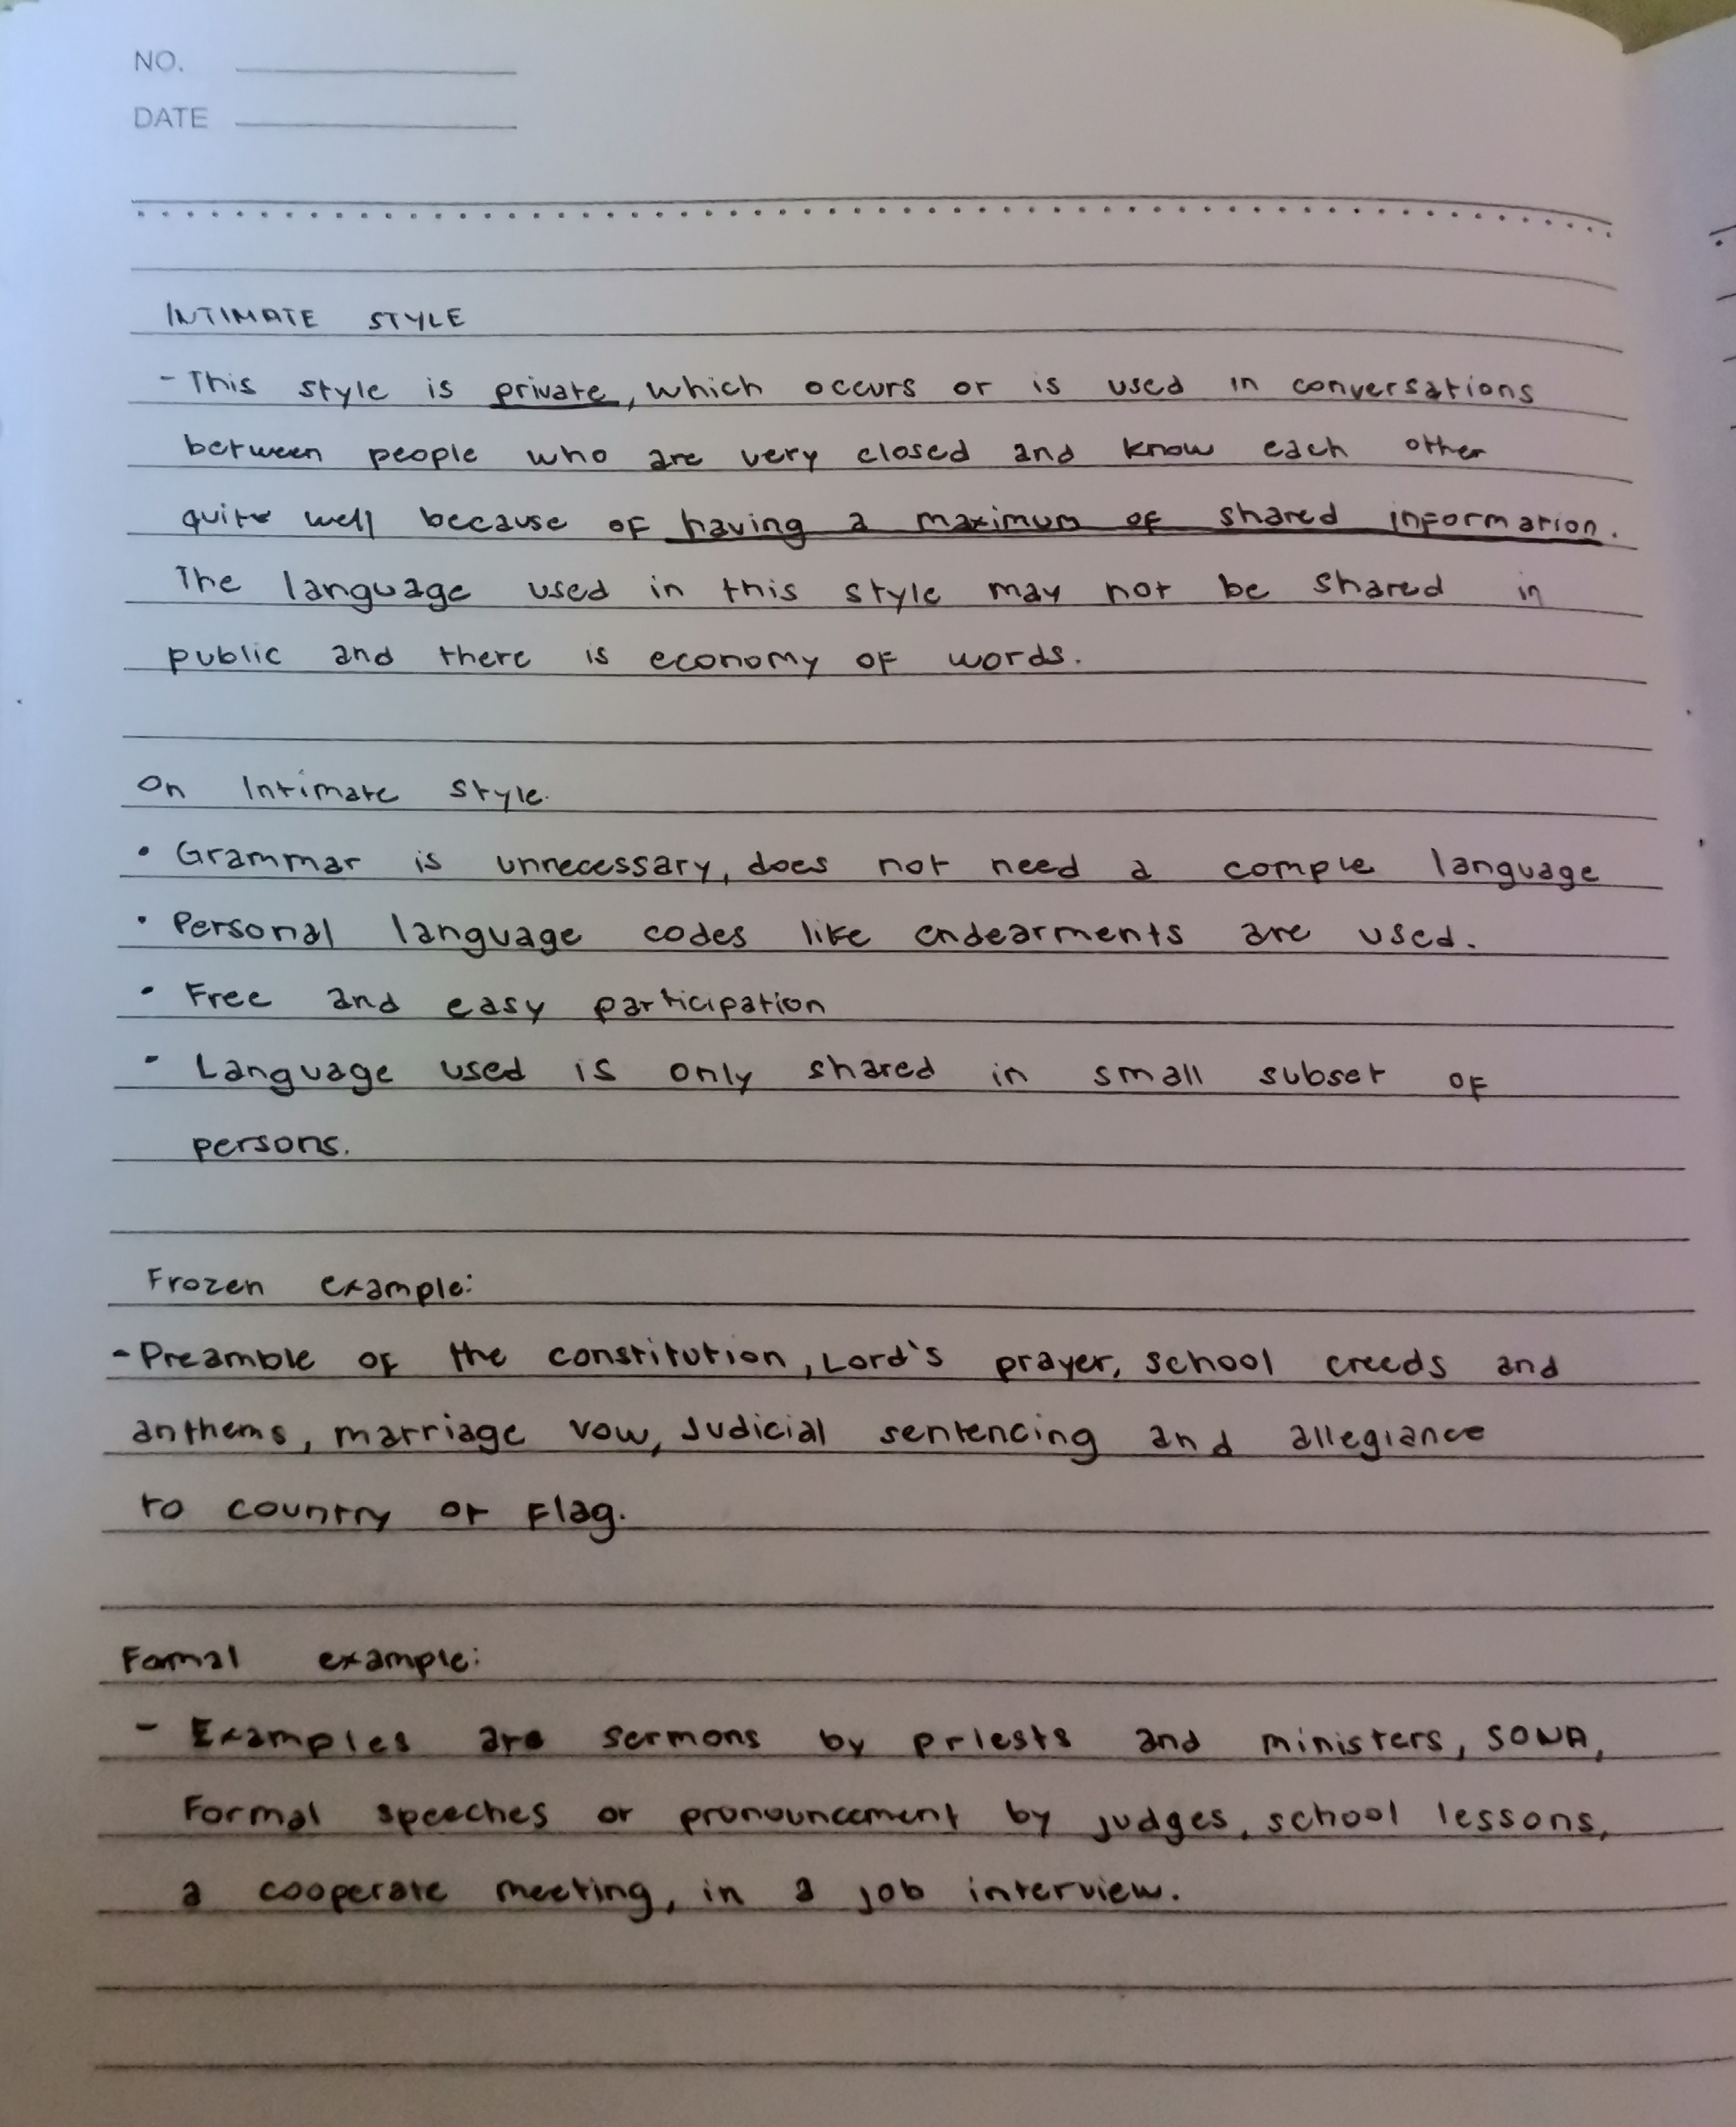 NO.
DATE
INTIMATE STYLE
- This style is private, which occurs or is used in conversations
between people who are very closed and know each other
quite well because of having a maximum of shared information.
The language used in this style may not be shared in
public and there is economy of words.
On Intimate style.
• Grammar is unnecessary, does not need a comple language
• Personal language codes like endearments are used.
• Free and easy participation
• Language used is only shared in small subset of
persons.
Frozen example:
- Preamble of the constitution, Lord's prayer, school creeds and
anthems, marriage vow, Judicial sentencing and allegiance
to country or flag.
Formal example:
- Examples are sermons by priests and ministers, SONA,
Formal speeches or pronouncement by judges, school lessons,
a cooperate meeting, in a job interview.